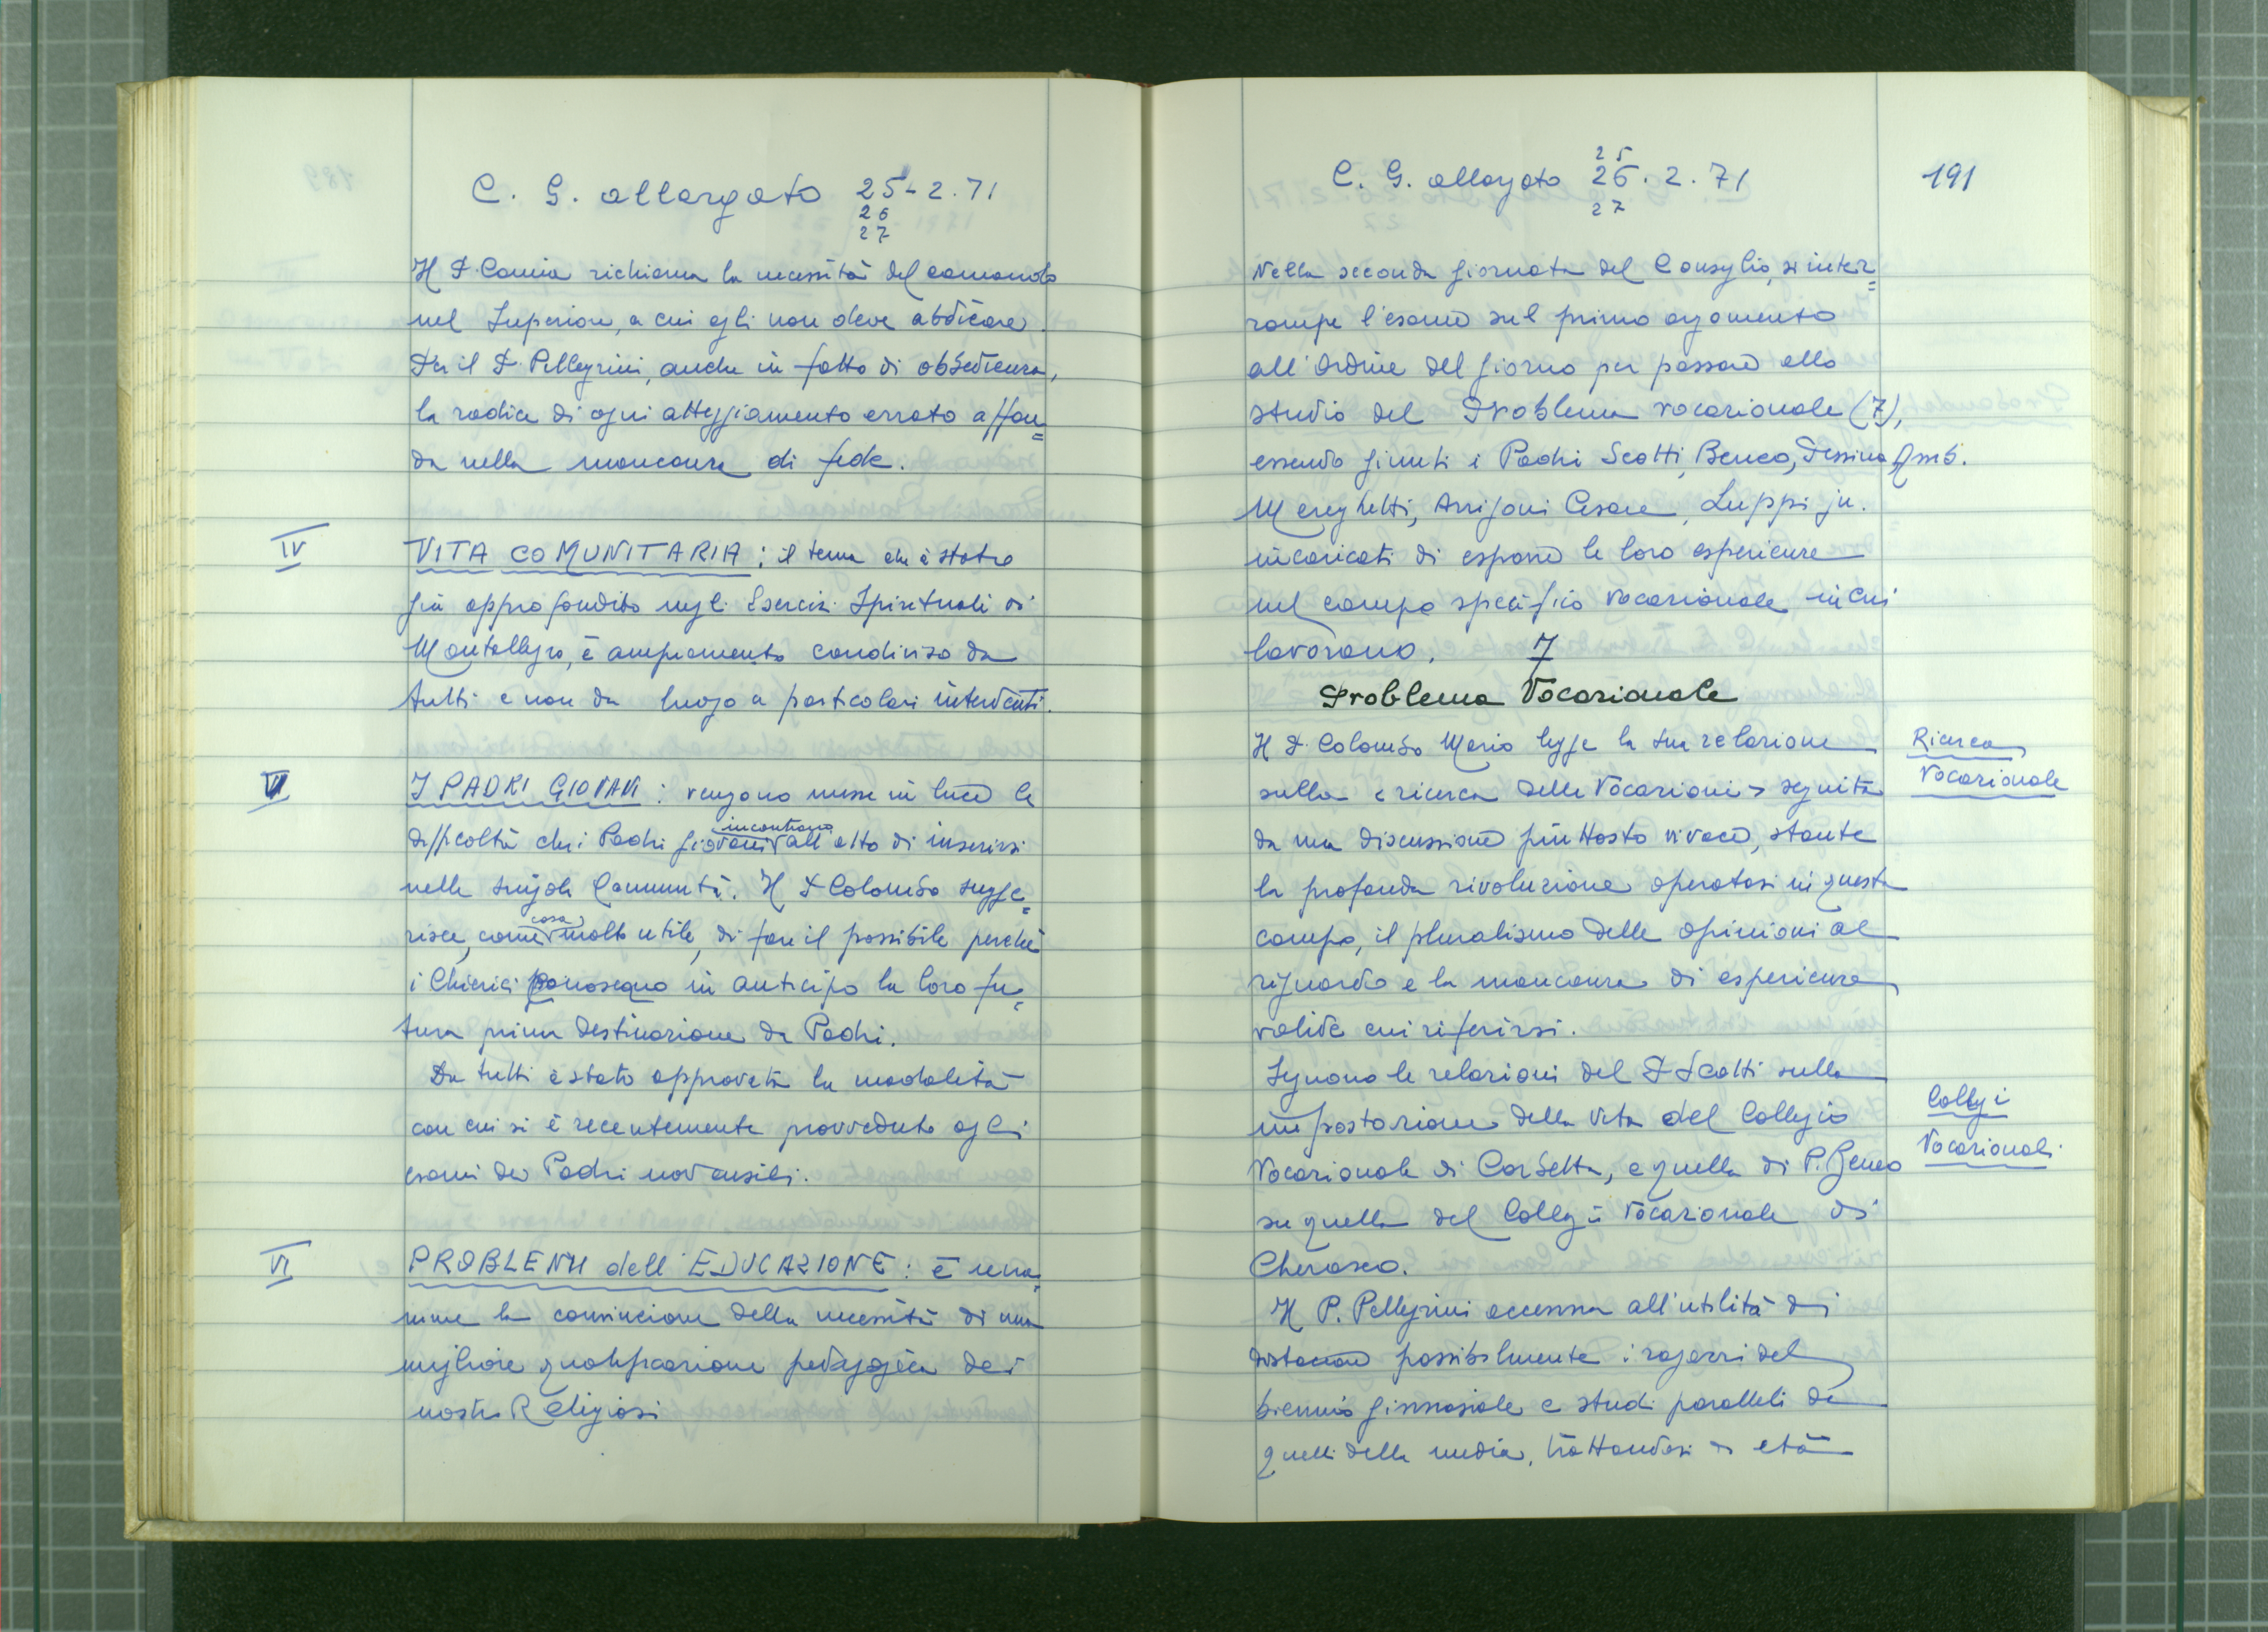 C. G. allargato 25-2.71
26
27
Il P. Camia richiama la necessità del comando
nel Superiore, a cui egli non deve abdicare.
Per il P. Pellegrini, anche in fatto di obbedienza,
la radice di ogni atteggiamento errato affon=
da nella mancanza di fede.
IV
VITA COMUNITARIA: il tema che è stato
già approfondito negli Esercizi Spirituali di
Montallegro, è ampiamente condiviso da
tutti e non da luogo a particolari interventi.
V
I PADRI GIOVANI: vengono messe in luce le
difficoltà che i Padri giovani incontrano all'atto di inserirsi
nelle singole Comunità. Il P. Colombo sugge=
risce, come cosa molto utile, di fare il possibile perchè
i Chierici conoscano in anticipo la loro fu=
tura prima destinazione da Padri.
Da tutti è stata approvata la modalità
con cui si è recentemente provveduto agli
esami dei Padri novensili.
VI
PROBLEMI dell'EDUCAZIONE: è una=
nime la convinzione della necessità di una
migliore qualificazione pedagogica dei
nostri Religiosi
C. G. allargato 25
26.2.71
27
191
Nella seconda giornata del Consiglio, si inter=
rompe l'esame sul primo argomento
all'Ordine del giorno per passare allo
studio del Problema vocazionale (7),
essendo giunti i Padri Scotti, Beneo, Pessina Amb.
Mereghetti, Arrigoni Cesare, Luppi ju.
incaricati di esporre le loro esperienze
nel campo specifico vocazionale in cui
lavorano.
7
Problema Vocazionale
Il P. Colombo Mario legge la sua relazione
Ricerca
Vocazionale
sulla < ricerca delle Vocazioni > seguita
da una discussione piuttosto vivace, stante
la profonda rivoluzione operatasi in questo
campo, il pluralismo delle opinioni al
riguardo e la mancanza di esperienze
valide cui riferirsi.
Seguono le relazioni del P. Scotti sulla
impostazione della vita del Collegio
Collegi
Vocazionali
Vocazionale di Corbetta, e quella di P. Beneo
su quella del Collegio Vocazionale di
Cherasco.
Il P. Pellegrini accenna all'utilità di
distaccare possibilmente i ragazzi del
biennio ginnasiale e studi paralleli da
quelli della media, trattandosi di età